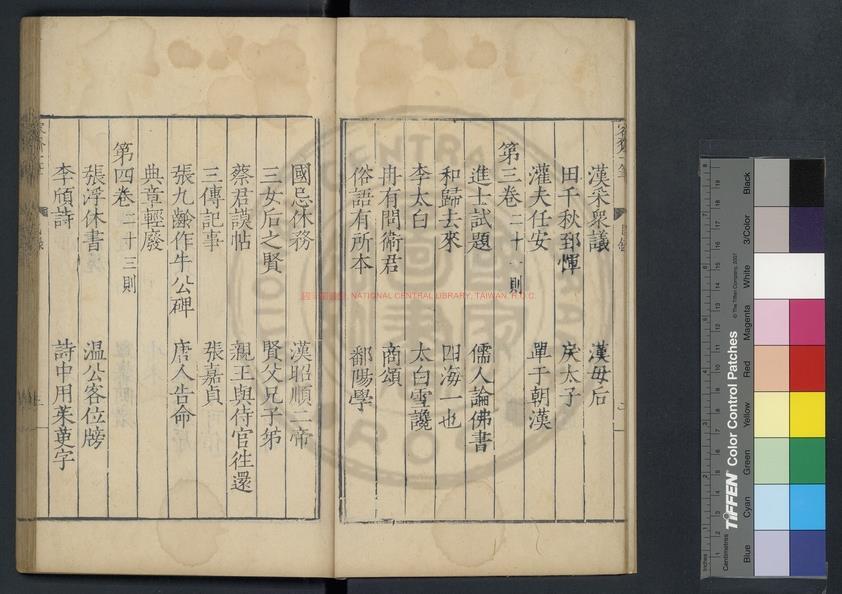 漢采衆議 漢母后
田千秋郅惲 戾太子
灌夫任安 單于朝漢
第三卷二十一則
進士試題 儒人論佛書
和歸去來 四海一也
李太白 太白雪讒
冉有問衛君 商頌
俗語有所本 鄱陽學
國忌休務 漢昭順二帝
三女后之賢 賢父兄子弟
蔡君謨帖 親王與侍官徃還
三傳記事 張嘉貞
張九齡作牛公碑 唐人告命
典章輕廢
第四卷二十三則
張浮休書 温公客位牓
李頎詩 詩中用茱萸字
NATIONAL CENTRAL LIBRARY, TAIWAN, R.O.C.
TIFFEN Color Control Patches
© The Tiffen Company, 2007
Centimetres
Inches
Blue
Cyan
Green
Yellow
Red
Magenta
White
3/Color
Black